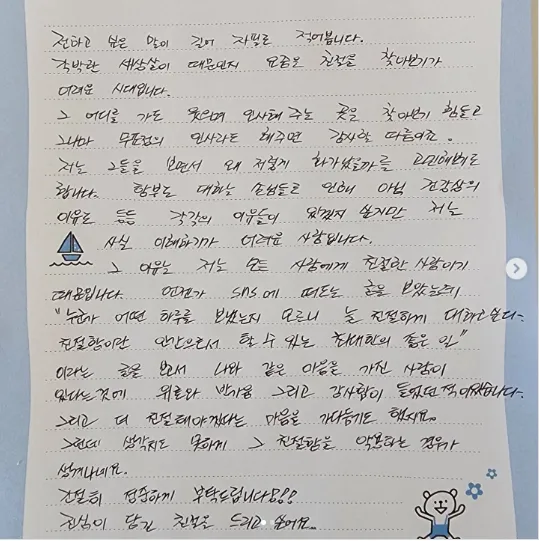 전하고 싶은 말이 길어 자필로 적어봅니다.
각박한 세상살이 때문인지 요즘은 친절을 찾아보기가
어려운 시대입니다.
그 어디를 가도 웃으며 인사해 주는 곳을 찾아보기 힘들고
그나마 무표정의 인사라도 해주면 감사할 따름이죠.
저는 그들을 보면서 왜 저렇게 화가났을까를 고민해보도
합니다. 함부로 대하는 손님들로 인해 아님 건강상의
이유로 등등 각각의 이유들이 있겠지 싶지만 저는
사실 이해하기가 어려운 사람입니다.
그 이유는 저는 모든 사람에게 친절한 사람이기
때문입니다. 언젠가 SNS에 떠도는 글을 보았는데
"누군가 어떤 하루를 보냈는지 모르니 늘 친절하게 대하고싶다-
친절함이란 인간으로서 할 수 있는 최대한의 좋은 일"
이라는 글을 보고서 나와 같은 마음을 가진 사람이
있다는것에 위로와 반가움 그리고 감사함이 들었던적이있습니다.
그리고 더 친절해야겠다는 마음을 가다듬기도 했지요..
그런데 생각지도 못하게 그 친절함을 악용하는 경우가
생겨나네요.
간절히 정중하게 부탁드립니다!!!
진심이 담긴 친절을 드리고 싶어요..